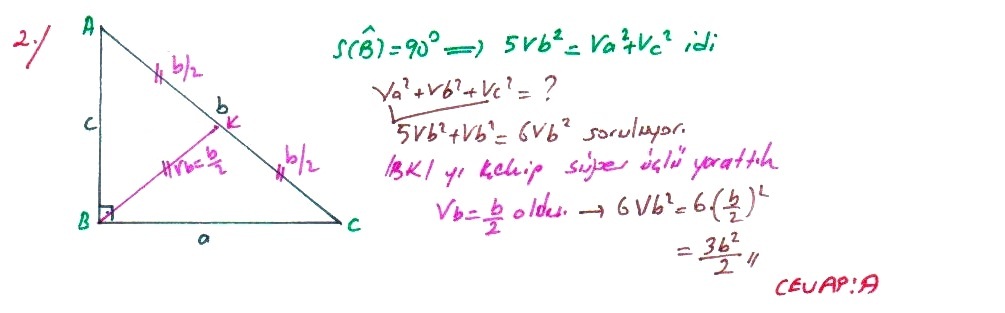 2./
A
b/2
b
K
c
Vb=b/2
b/2
B
a
C
S(B̂)=90° ⟹ 5Vb²=Va²+Vc² idi
Va²+Vb²+Vc²=?
5Vb²+Vb²=6Vb² soruluyor.
|BK| yı çekip süper üçlü yarattık
Vb=b/2 oldu. → 6Vb²=6.(b/2)²
=3b²/2 //
CEVAP:A